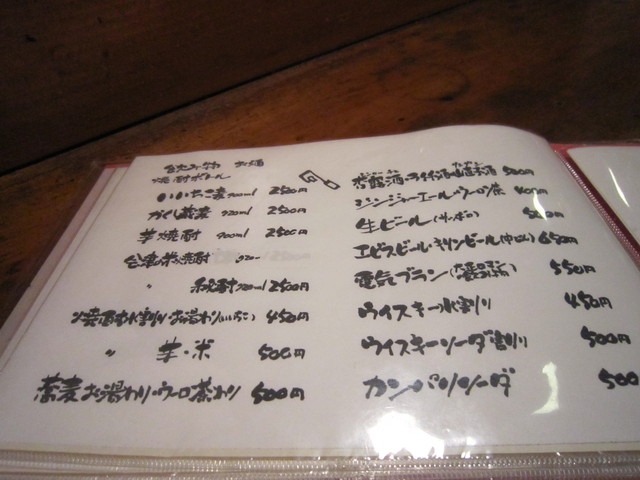 お飲み物 お酒
焼酎ボトル
いいちこ麦 900ml 2500円
かくし蔵麦 720ml 2500円
芋焼酎 900ml 2500円
会津の米焼酎 720ml
〃 720ml 2500円
焼酎水割り・お湯わり(いいちこ) 450円
〃 芋・米 500円
蕎麦お湯わり・ウーロ茶わり 500円
500円
ジンジャーエール・ウーロン茶 400円
生ビール(サッポロ)
エビスビール・キリンビール(中ビン) 650円
電気ブラン 550円
ウイスキー水割り 450円
ウイスキーソーダ割り 500円
カンパリソーダ 500